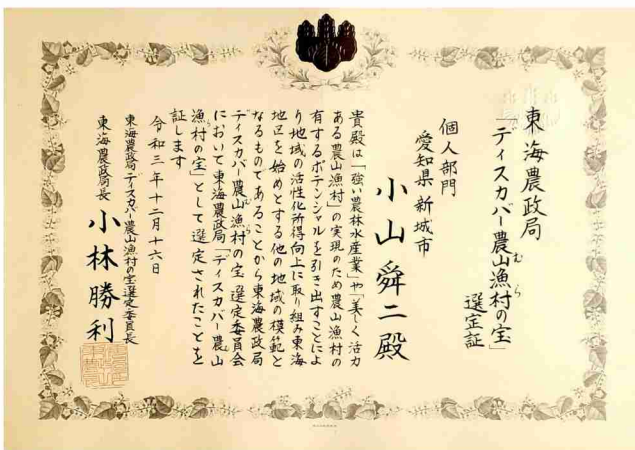 東海農政局
「ディスカバー農山漁村の宝」
むら
選定証
個人部門
愛知県新城市
小山舜二殿
貴殿は「強い農林水産業」や「美しく活力
ある農山漁村」の実現のため農山漁村の
有するポテンシャルを引き出すことによ
り地域の活性化所得向上に取り組み東海
地区を始めとする他の地域の模範と
なるものであることから東海農政局
ディスカバー農山漁村の宝選定委員会
において東海農政局「ディスカバー農山
漁村の宝」として選定されたことを
証します
令和三年十二月十六日
東海農政局ディスカバー農山漁村の宝選定委員長
東海農政局長 小林勝利